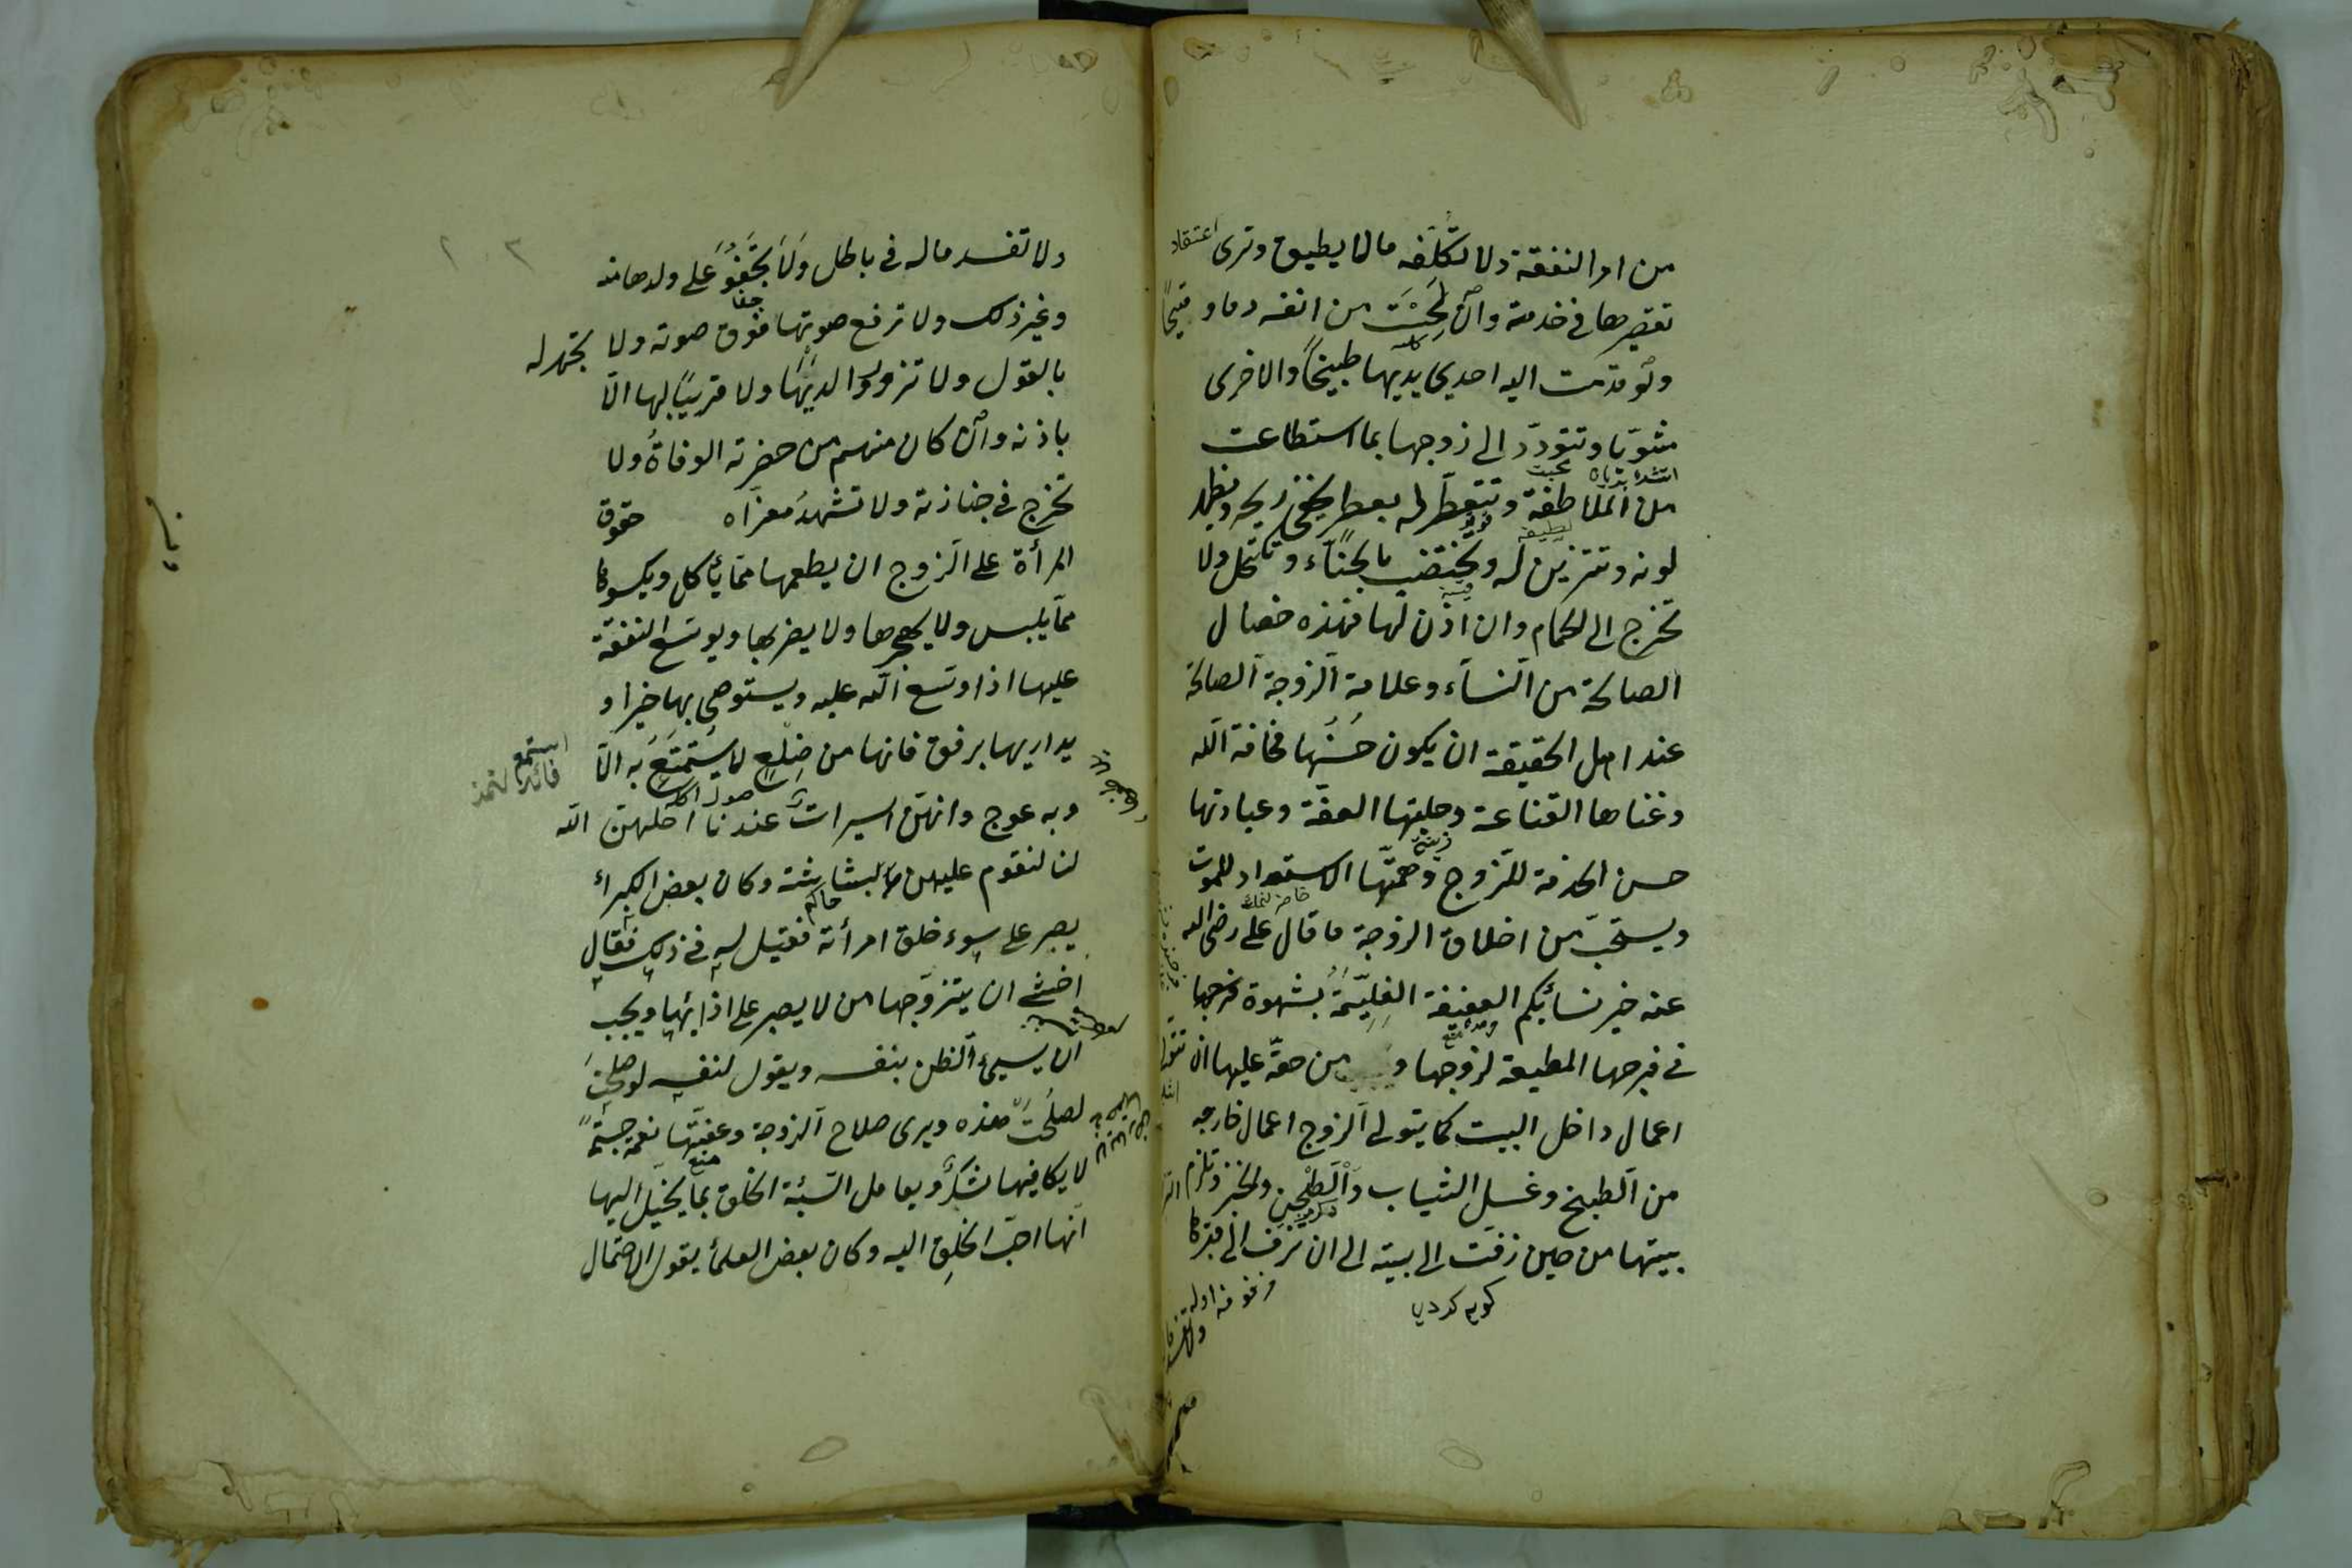 من امر النفقة ولا تكلفه مالا يطيق وترى اعتقاد
تقصيرها في خدمته وان لحست من انفه دما و قيحًا
ولو قدمت اليه احدى يديها طبيخًا والاخرى
مشويًا وتتودد الى زوجها بما استطاعت
من الملاطفة وتتعطر له بعطر يخفى ريحه ويظهر
لونه وتتزين له وتختضب بالحناء وتكتحل ولا
تخرج الى الحمام وان اذن لها فهذه خصال
الصالحة من النساء وعلامة الزوجة الصالحة
عند اهل الحقيقة ان يكون حسنها مخافة الله
وغناها القناعة وحليتها العفة وعبادتها
حسن الخدمة للزوج وهمتها الاستعداد للموت
ويستحب من اخلاق الزوجة ما قال على رضى الله
عنه خير نسائكم العفيفة الغليمة بشهوة فرجها
فى فرجها المطيعة لزوجها و من حقه عليها ان تتولى
اعمال داخل البيت كما يتولى الزوج اعمال خارجه
من الطبخ وغسل الثياب والطحن والخبز وتلزم
بيتها من حين زفت الى بيته الى ان تزف الى قبرها
ولا تفسد ماله فى باطل ولا تجفو على ولدها منه
وغير ذلك ولا ترفع صوتها فوق صوته ولا تجهر له
بالقول ولا تزور والديها ولا قريبًا لها الا
باذنه وان كان منهم من حضرته الوفاة ولا
تخرج فى جنازته ولا تشهد معزاه حقوق
المرأة على الزوج ان يطعمها مما يأكل ويكسوها
مما يلبس ولا يهجرها ولا يضربها ويوسع النفقة
عليها اذا وسع الله عليه ويستوصى بها خيرا و
يداريها برفق فانها من ضلع لا يستمتع به الا
وبه عوج وانهن اسيرات عندنا احلهن الله
لنا لنقوم عليهن بالبشاشة وكان بعض الكبراء
يصبر على سوء خلق امرأته فقيل له فى ذلك فقال
اخشى ان يتزوجها من لا يصبر على اذائها ويجب
ان يسيئ الظن بنفسه ويقول لنفسه لو صلحت
لصلحت هذه ويرى صلاح الزوجة وعفتها نعمة جسيمة
لا يكافيها شكر ويعامل السيئة الخلق بما يخيل اليها
انها احب الخلق اليه وكان بعض العلماء يقول الاحتمال